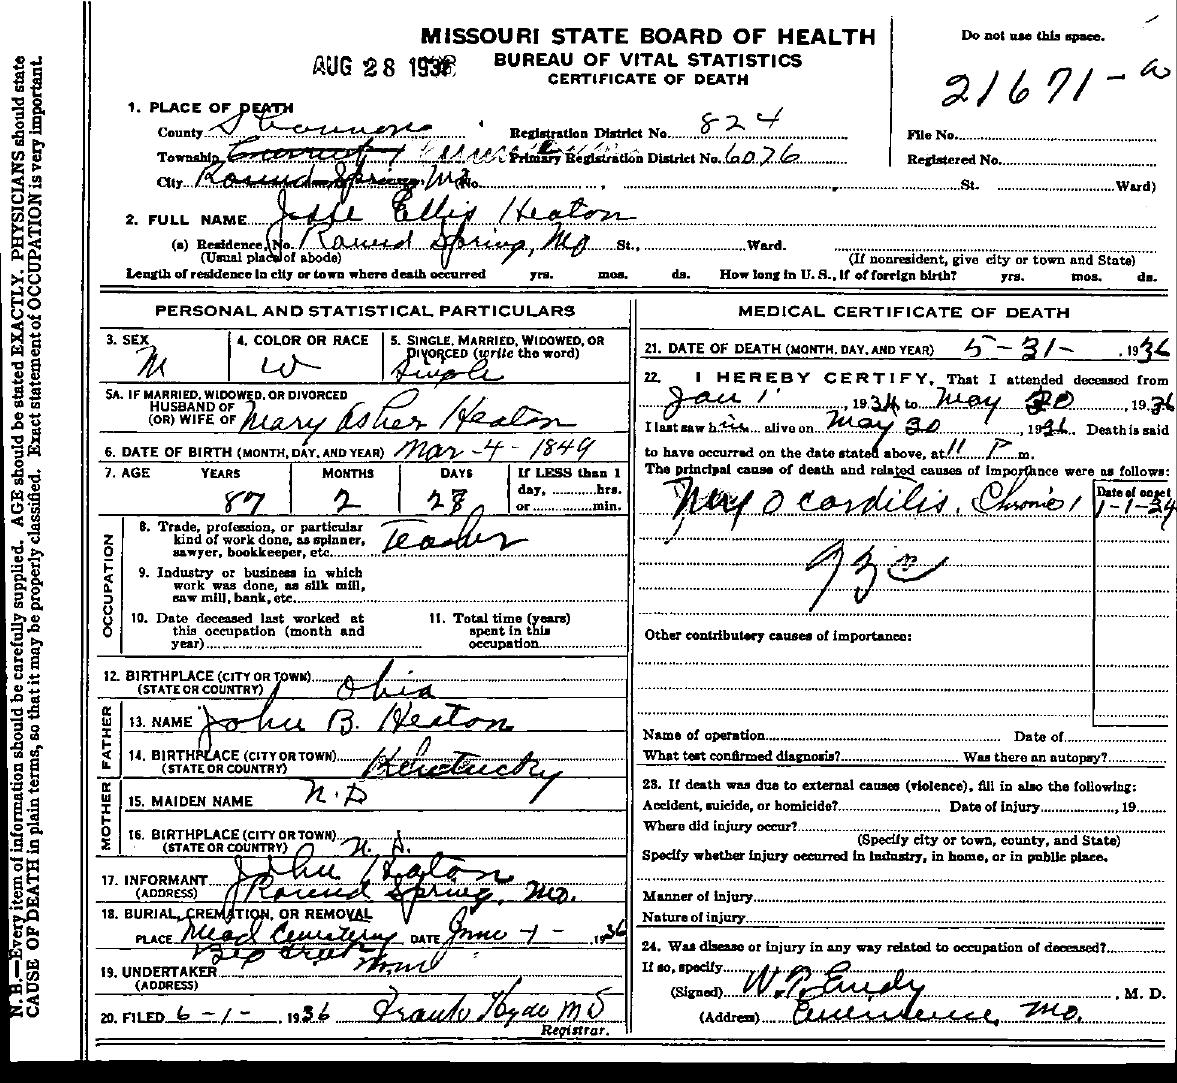 MISSOURI STATE BOARD OF HEALTH
BUREAU OF VITAL STATISTICS
CERTIFICATE OF DEATH
AUG 28 1936
Do not use this space.
21671-a
1. PLACE OF DEATH
County Shannon Registration District No. 824 File No.
Township Primary Registration District No. 6076 Registered No.
City Round Spring, Mo. No. , St. Ward)
2. FULL NAME Jesse Ellis Heaton
(a) Residence, No. Round Spring, Mo St., Ward.
(Usual place of abode) (If nonresident, give city or town and State)
Length of residence in city or town where death occurred yrs. mos. ds. How long in U. S., if of foreign birth? yrs. mos. ds.
PERSONAL AND STATISTICAL PARTICULARS
3. SEX M
4. COLOR OR RACE W
5. SINGLE, MARRIED, WIDOWED, OR DIVORCED (write the word) Single
5A. IF MARRIED, WIDOWED, OR DIVORCED
HUSBAND OF
(OR) WIFE OF Mary Asher Heaton
6. DATE OF BIRTH (MONTH, DAY, AND YEAR) Mar-4-1849
7. AGE YEARS MONTHS DAYS If LESS than 1
day, hrs.
87 2 28 or min.
OCCUPATION
8. Trade, profession, or particular
kind of work done, as spinner,
sawyer, bookkeeper, etc. Teacher
9. Industry or business in which
work was done, as silk mill,
saw mill, bank, etc.
10. Date deceased last worked at
this occupation (month and
year)
11. Total time (years)
spent in this
occupation
12. BIRTHPLACE (CITY OR TOWN)
(STATE OR COUNTRY) Ohio
FATHER
13. NAME John B. Heaton
14. BIRTHPLACE (CITY OR TOWN)
(STATE OR COUNTRY) Kentucky
MOTHER
15. MAIDEN NAME N.D
16. BIRTHPLACE (CITY OR TOWN)
(STATE OR COUNTRY) N. D.
17. INFORMANT John Heaton
(ADDRESS) Round Spring, Mo.
18. BURIAL, CREMATION, OR REMOVAL
PLACE Mead Cemetery DATE June-1- 1936
19. UNDERTAKER
(ADDRESS)
20. FILED 6-1-, 1936 Frank Hyde MD
Registrar.
MEDICAL CERTIFICATE OF DEATH
21. DATE OF DEATH (MONTH, DAY, AND YEAR) 5-31-, 1936
22. I HEREBY CERTIFY, That I attended deceased from
Jan 1, 1934 to May 30, 1936
I last saw him alive on May 30, 1936. Death is said
to have occurred on the date stated above, at 11 P m.
The principal cause of death and related causes of importance were as follows:
Date of onset
Myocarditis, Chronic 1-1-34
93c
Other contributory causes of importance:
Name of operation Date of
What test confirmed diagnosis? Was there an autopsy?
23. If death was due to external causes (violence), fill in also the following:
Accident, suicide, or homicide? Date of injury , 19
Where did injury occur?
(Specify city or town, county, and State)
Specify whether injury occurred in industry, in home, or in public place.
Manner of injury
Nature of injury
24. Was disease or injury in any way related to occupation of deceased?
If so, specify
(Signed) W. P. Eudy, M. D.
(Address) Eminence, Mo.
N. B.—Every item of information should be carefully supplied. AGE should be stated EXACTLY. PHYSICIANS should state
CAUSE OF DEATH in plain terms, so that it may be properly classified. Exact statement of OCCUPATION is very important.